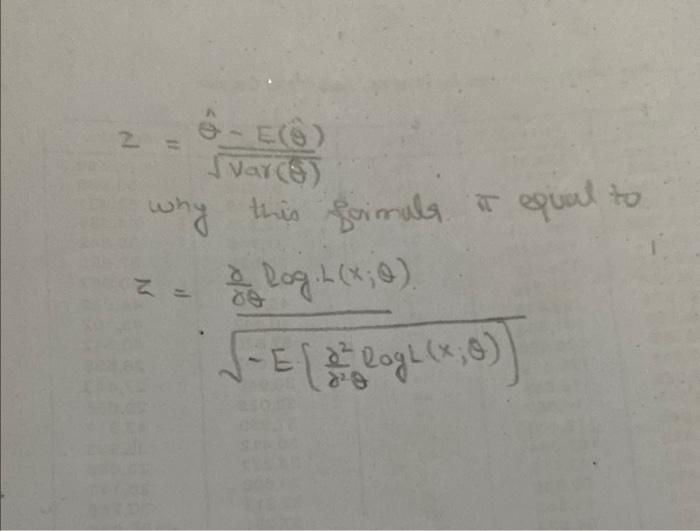 z = θ̂ - E(θ̂) / √Var(θ̂)
why this formula is equal to
z = ∂/∂θ log.L(x;θ) / √-E[∂²/∂²θ log L(x;θ)]